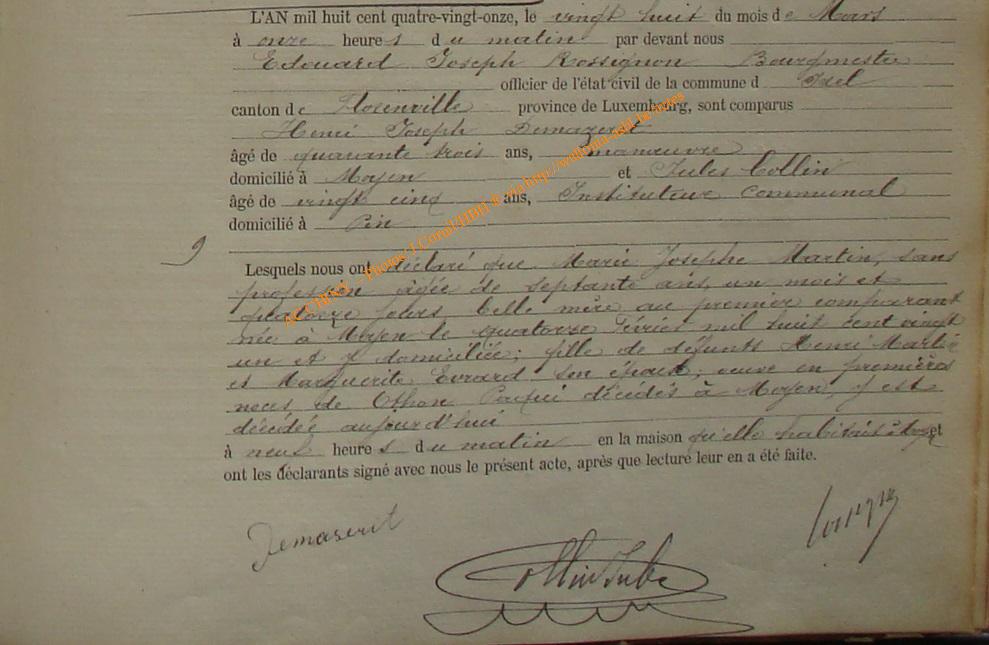 L'AN mil huit cent quatre-vingt-onze, le vingt huit du mois de Mars
à onze heures du matin par devant nous
Edouard Joseph Rossignon Bourgmestre
officier de l'état civil de la commune d Izel
canton de Florenville province de Luxembourg, sont comparus
Henri Joseph Demazeret
âgé de quarante trois ans, manœuvre
domicilié à Moyen et Jules Collin
âgé de vingt cinq ans, Instituteur communal
domicilié à Pin
9
Lesquels nous ont déclaré que Marie Josephe Martin, sans
profession âgée de septante ans, un mois et
quatorze jours, belle mère au premier comparant
née à Moyen le quatorze Février mil huit cent vingt
un et y domiciliée; fille de défunts Henri Martin
et Marguerite Evrard son épouse; veuve en premières
noces, de Othon décédés à Moyen, y est
décédée aujourd'hui
à neuf heures du matin en la maison qu'elle habitait à et
ont les déclarants signé avec nous le présent acte, après que lecture leur en a été faite.
Demaseret
Collin Jules